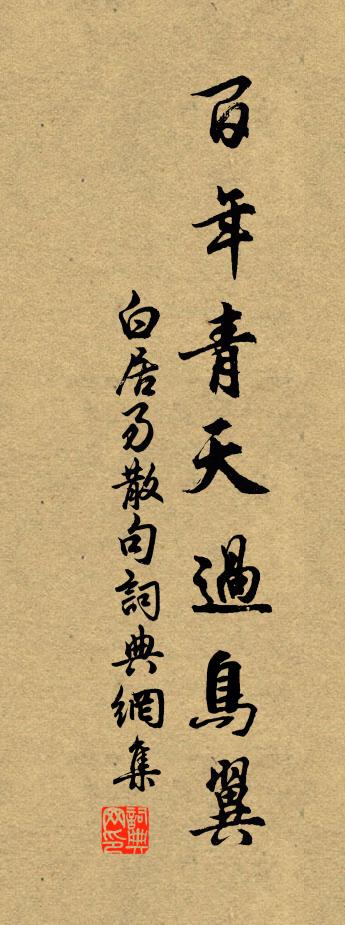 百年青天過鳥翼
白居易散句詞典網集
詞典網印